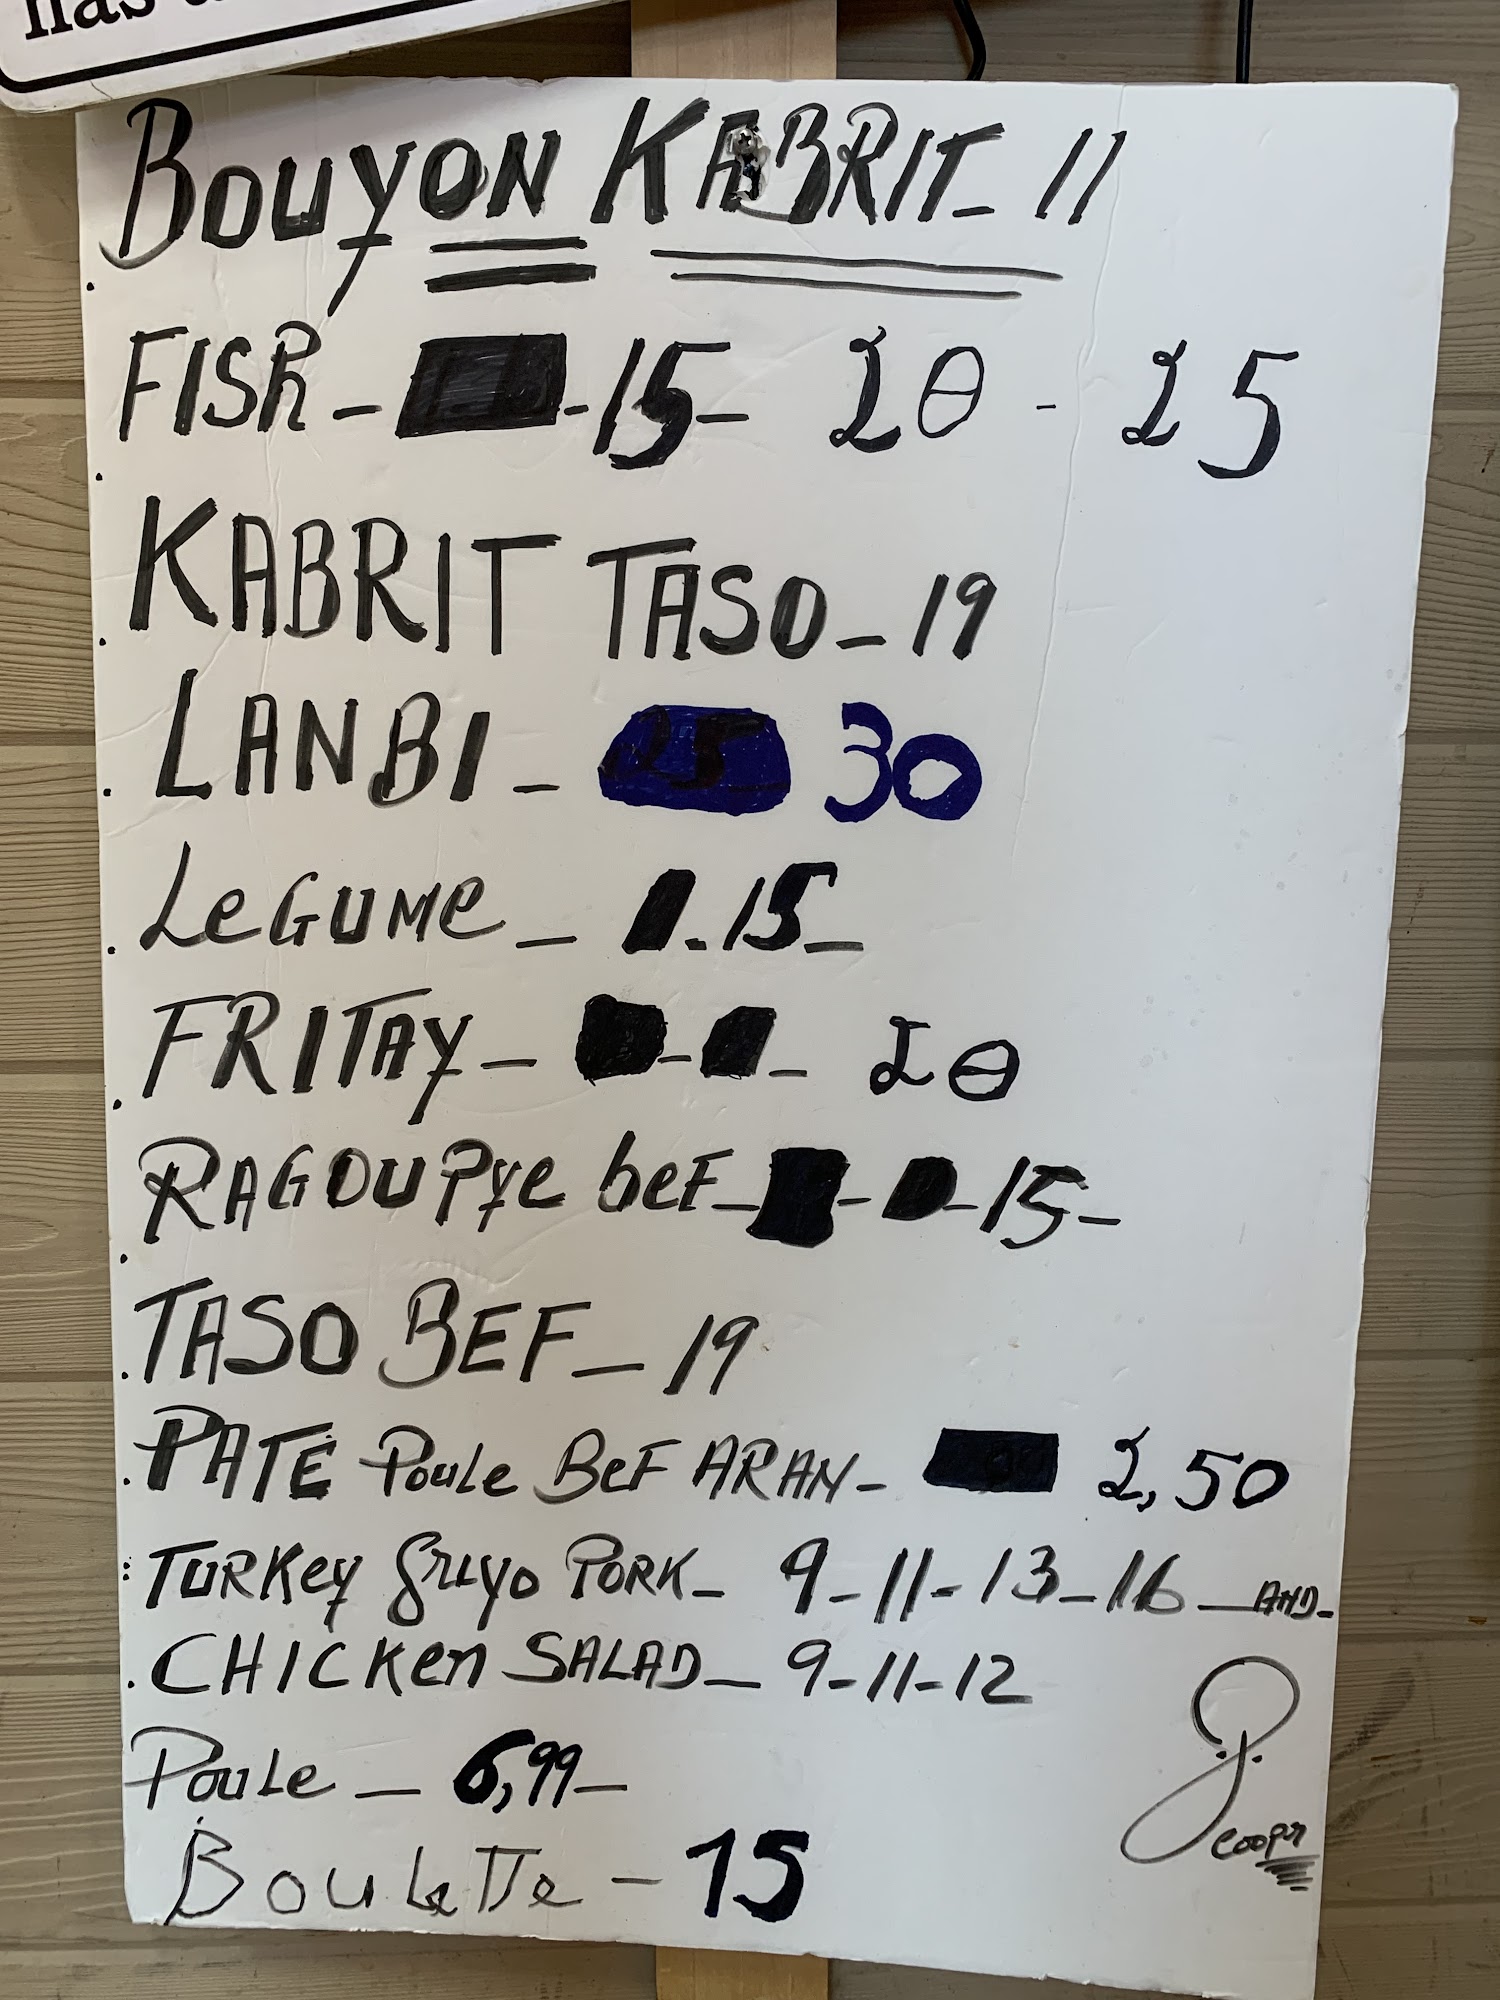 has
BOUYON KABRIT_ 11
FISH_ -15- 20 - 25
KABRIT TASO_19
LANBI_ 30
LeGUMe_ .15_
FRITAY_ - _ 20
RAGOU Pye beF_ - _15_
TASO BEF_ 19
PATE Poule BeF ARAN_ 2,50
TURKey gryo PORK_ 9_11-13_16 _AND_
CHICKen SALAD_ 9-11-12
Poule _ 6,99_
BouLeTTe - 15
J. Coopr